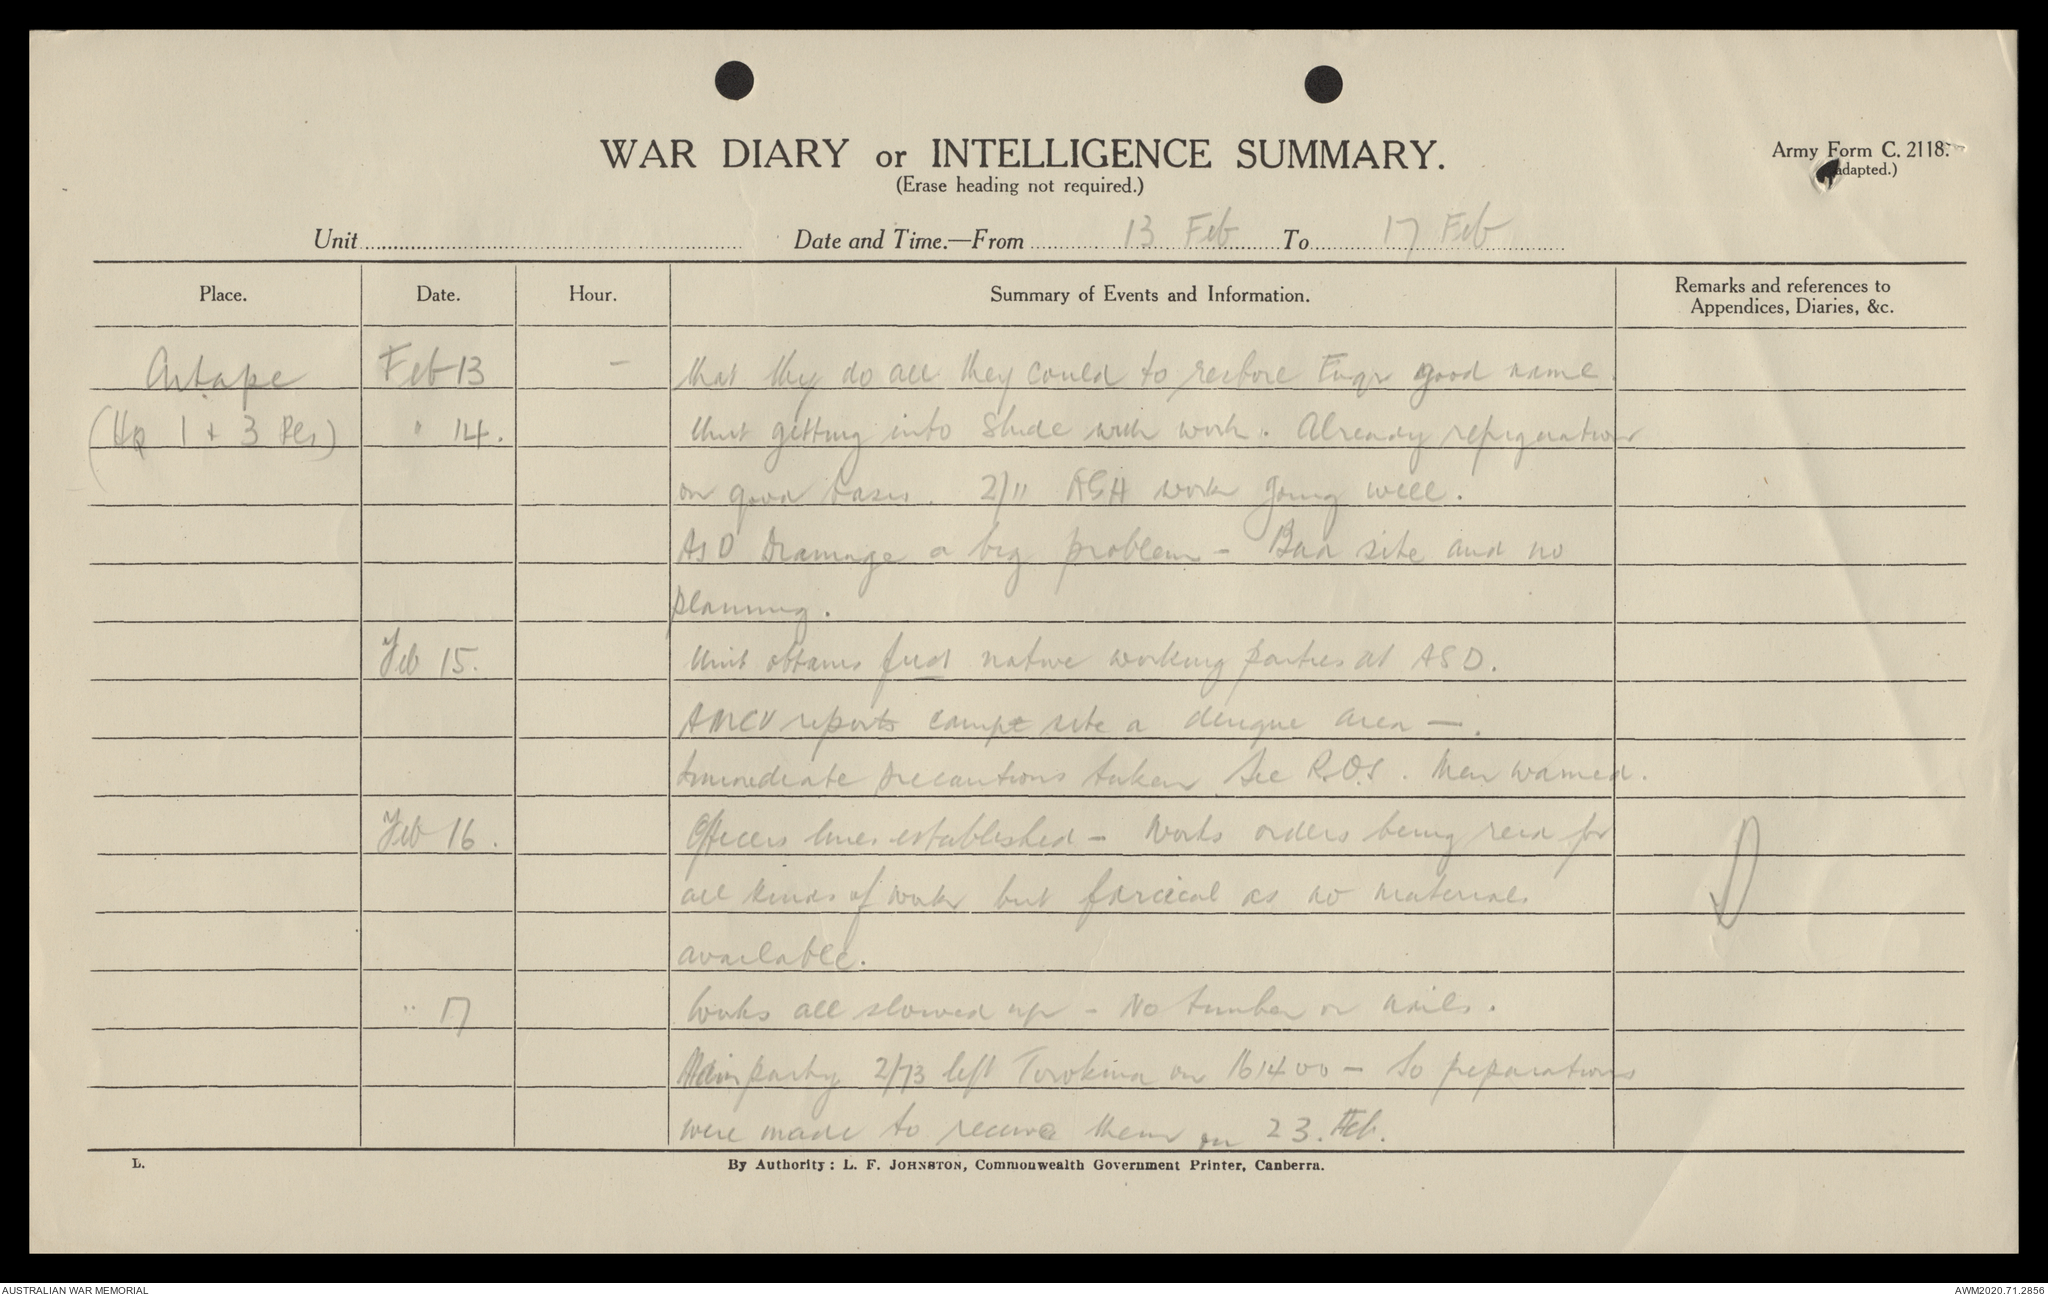 WAR DIARY or INTELLIGENCE SUMMARY.
(Erase heading not required.)
Army Form C. 2118.
(adapted.)
Unit
Date and Time.—From 13 Feb To 17 Feb
Place. Date. Hour. Summary of Events and Information. Remarks and references to Appendices, Diaries, &c.
Aitape Feb 13 – that they do all they could to restore Engr good name.
(Hq 1 + 3 Pls) " 14. Unit getting into stride with work. Already refrigeration
on good basis. 2/11 AGH work going well.
ASD Drainage a big problem – Bad site and no
planning.
Feb 15. Unit obtains first native working parties at ASD.
AMCU reports camp site a dengue area –.
Immediate precautions taken See R.O.s. Men warned.
Feb 16. Officers lines established – Works orders being recd for
all kinds of works but farcical as no materials
available.
" 17 Works all slowed up – No timber or nails.
Main party 2/73 left Torokina on 161400 – So preparations
were made to receive them on 23. Feb.
L.
By Authority: L. F. JOHNSTON, Commonwealth Government Printer, Canberra.
AUSTRALIAN WAR MEMORIAL
AWM2020.71.2856